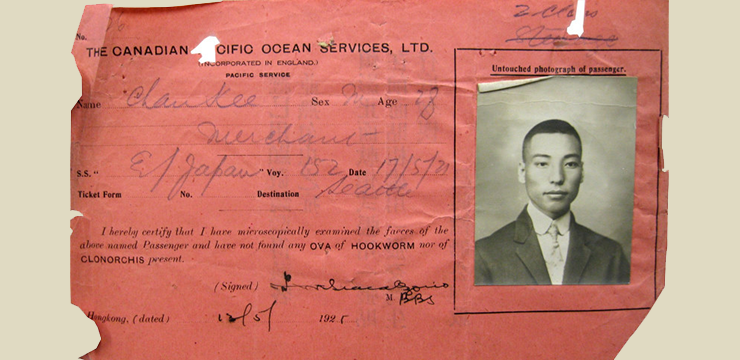 No.
THE CANADIAN CIFIC OCEAN SERVICES, LTD.
(INCORPORATED IN ENGLAND.)
PACIFIC SERVICE
Name Chan Kee Sex M Age 27
Merchant
S.S. " E/Japan " Voy. 152 Date 17/5/21
Ticket Form No. Destination Seattle
I hereby certify that I have microscopically examined the faeces of the
above named Passenger and have not found any OVA of HOOKWORM nor of
CLONORCHIS present.
(Signed)
M.BBS
Hongkong, (dated) 12/5/ 192
2. Class
Untouched photograph of passenger.